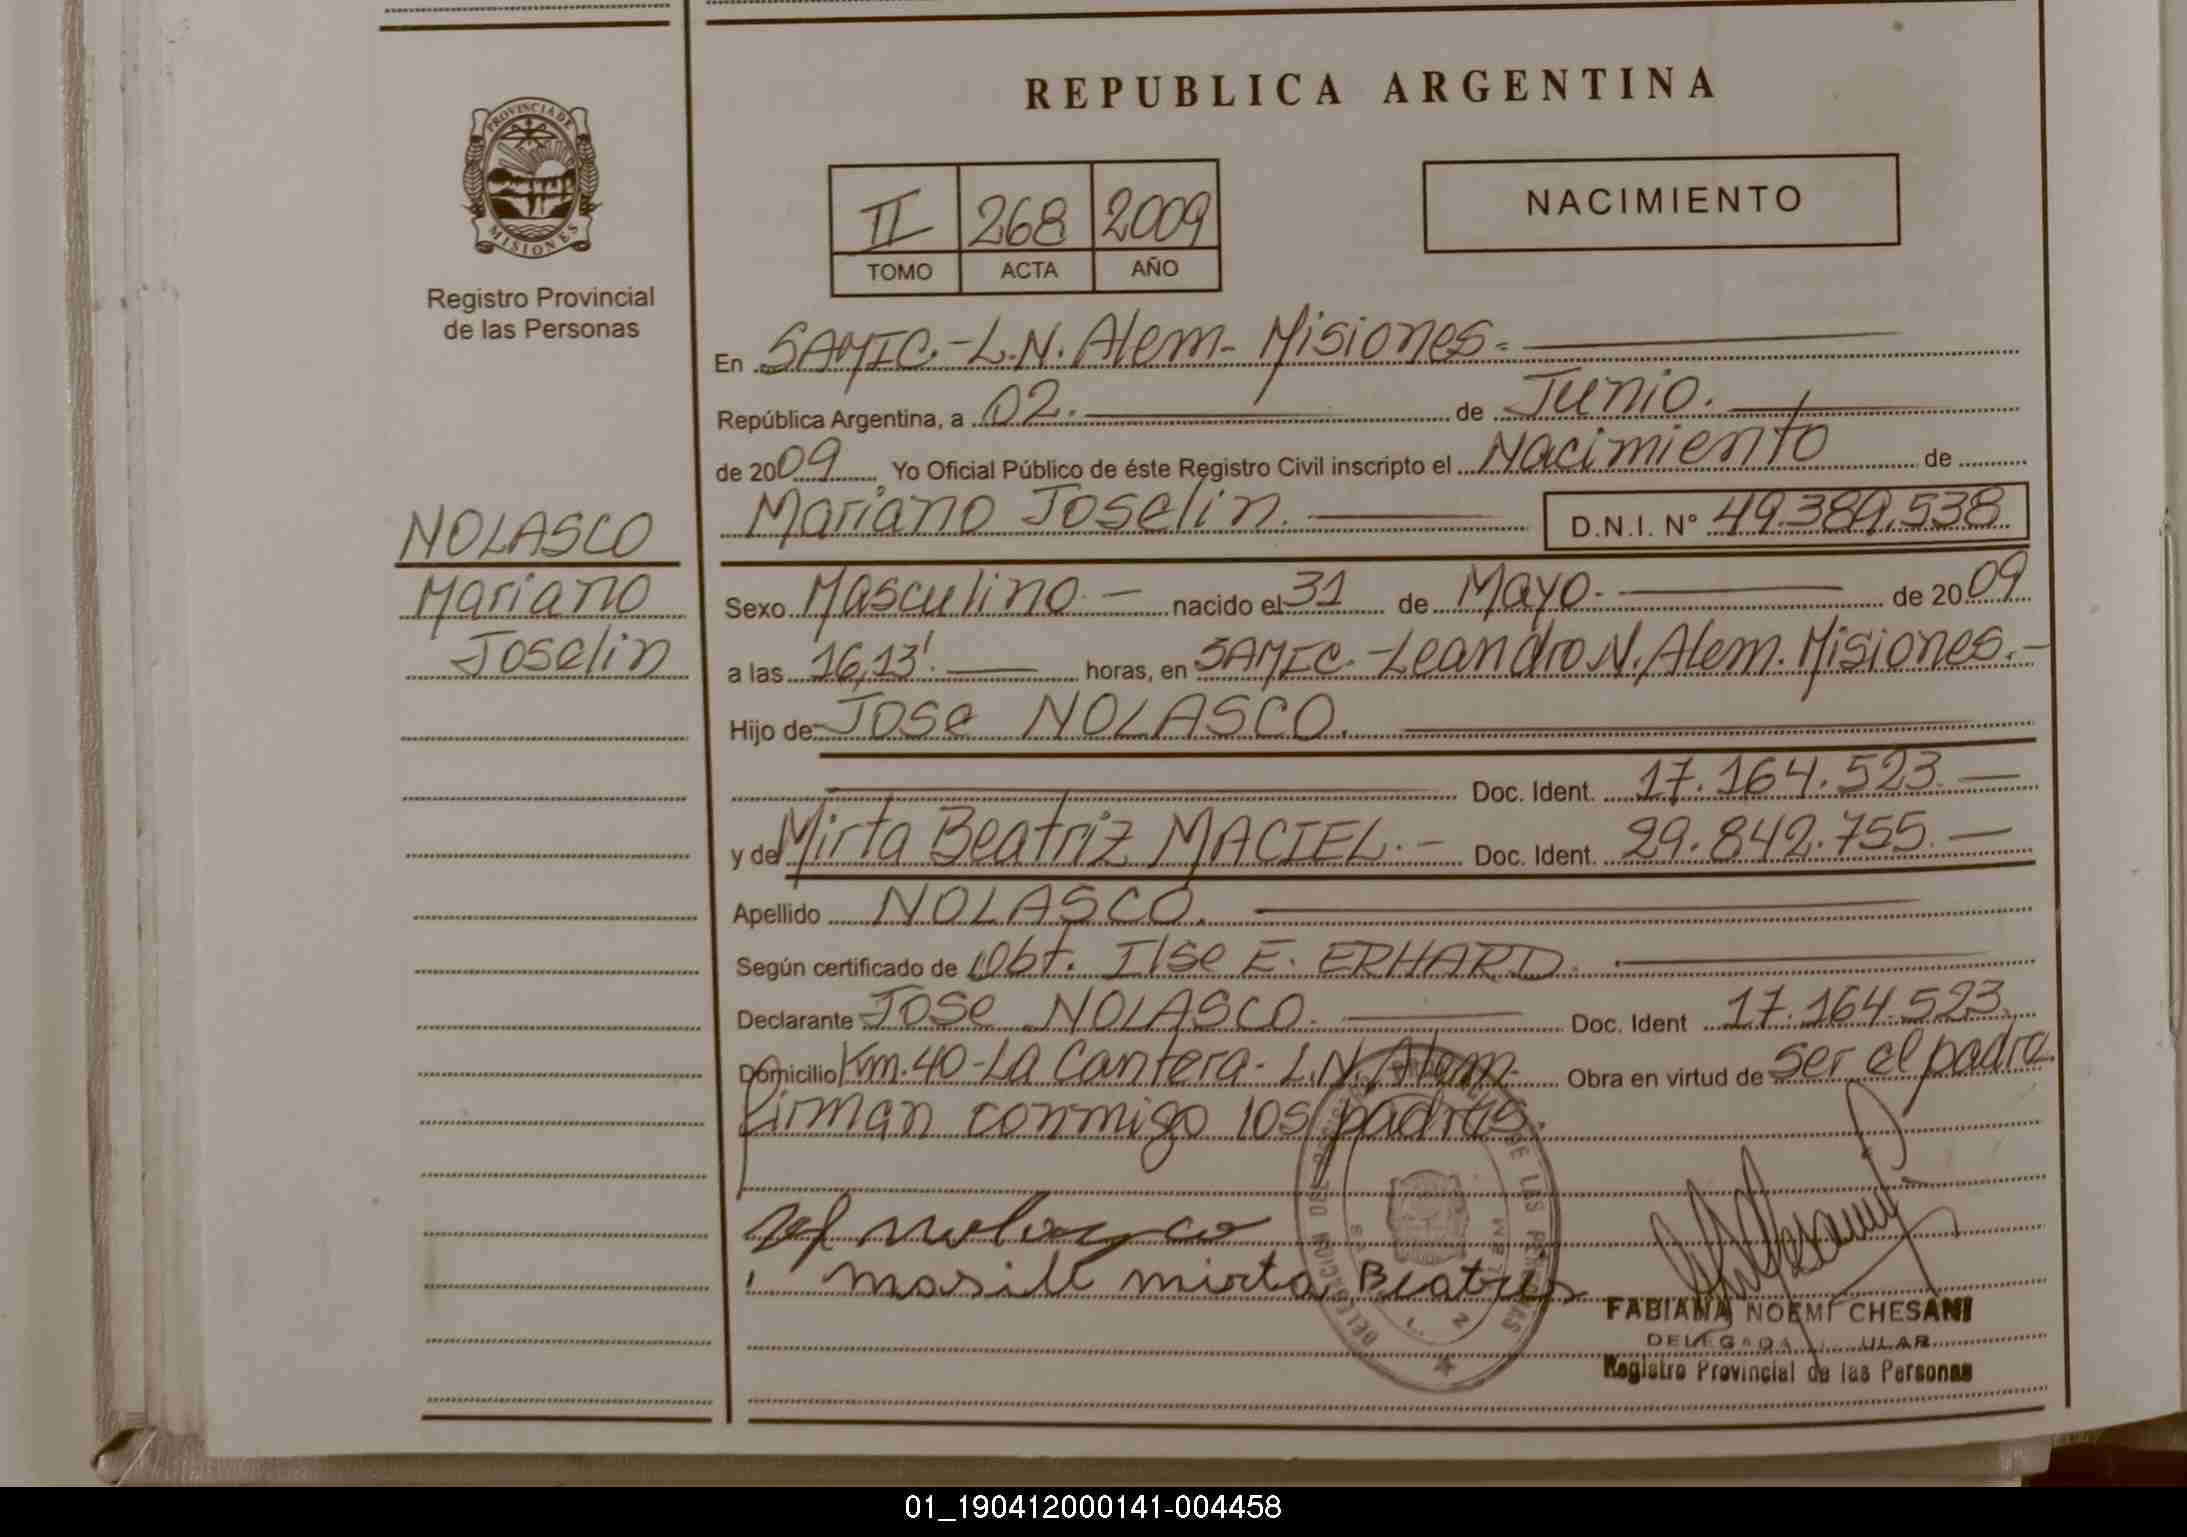 REPUBLICA ARGENTINA
PROVINCIA DE
MISIONES
Registro Provincial
de las Personas
II 268 2009
TOMO ACTA AÑO
NACIMIENTO
En SAMIC.-L.N. Alem- Misiones-
República Argentina, a 02. de Junio.
de 2009 Yo Oficial Público de éste Registro Civil inscripto el Nacimiento de
Mariano Joselin. D.N.I. N° 49.389.538
NOLASCO
Mariano
Joselin
Sexo Masculino.- nacido el 31 de Mayo. de 2009
a las 16,13'. horas, en SAMIC.-Leandro N. Alem. Misiones.-
Hijo de Jose NOLASCO.
Doc. Ident. 17.164.523.-
y de Mirta Beatriz MACIEL.- Doc. Ident. 29.842.755.-
Apellido NOLASCO.
Según certificado de Obt. Ilse E. ERHARD.
Declarante Jose NOLASCO. Doc. Ident 17.164.523.
Domicilio Km.40-La Cantera- L.N. Alem- Obra en virtud de ser el padre.
firman conmigo los padres.
nolasco
masiel mirta Beatris
FABIANA NOEMI CHESANI
DELEGADA
Registro Provincial de las Personas
01_190412000141-004458